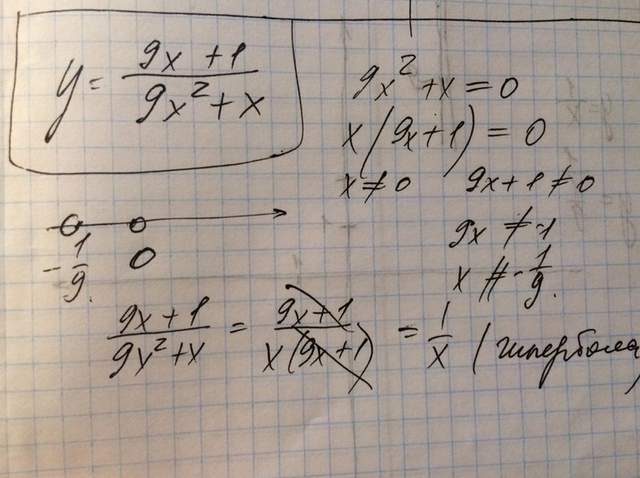 y = (9x + 1)/(9x² + x)
9x² + x = 0
x(9x+1) = 0
x ≠ 0 9x+1 ≠ 0
9x ≠ -1
x ≠ -1/9.
-1/9. 0
(9x + 1)/(9x² + x) = (9x + 1)/(x(9x+1)) = 1/x (гипербола